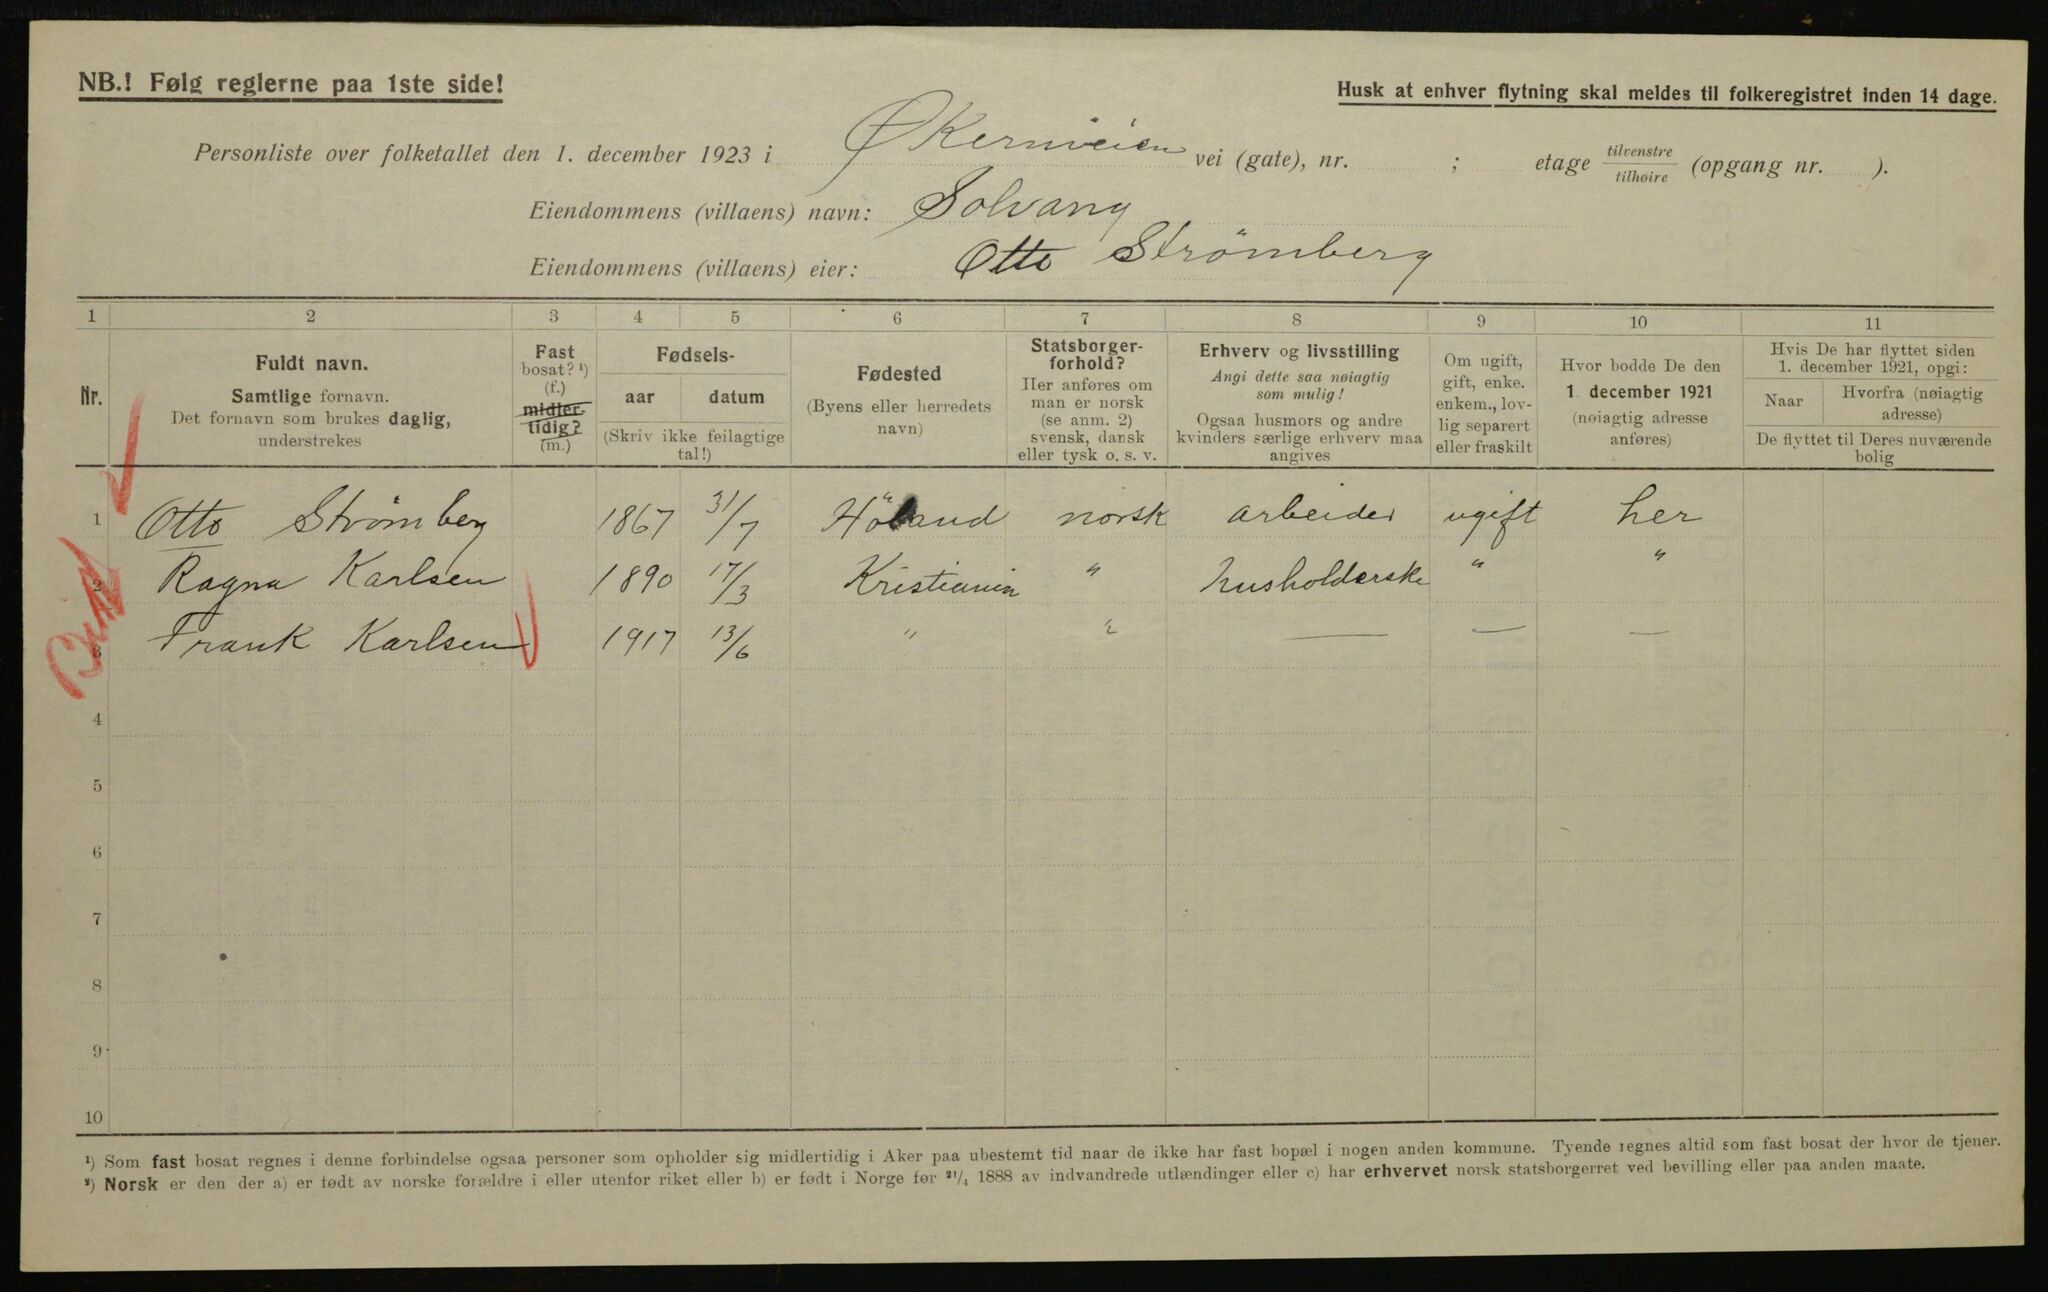 NB.! Følg reglerne paa 1ste side!
Husk at enhver flytning skal meldes til folkeregistret inden 14 dage.
Personliste over folketallet den 1. december 1923 i Økernveien vei (gate), nr. ; etage tilvenstre/tilhøire (opgang nr. ).
Eiendommens (villaens) navn: Solvang
Eiendommens (villaens) eier: Otto Strömberg
1 2 3 4 5 6 7 8 9 10 11
Nr.
Fuldt navn.
Samtlige fornavn.
Det fornavn som brukes daglig,
understrekes
Fast
bosat? ¹)
(f.)
midler-
tidig?
(m.)
Fødsels-
aar datum
(Skriv ikke feilagtige
tal!)
Fødested
(Byens eller herredets
navn)
Statsborger-
forhold?
Her anføres om
man er norsk
(se anm. 2)
svensk, dansk
eller tysk o. s. v.
Erhverv og livsstilling
Angi dette saa nøiagtig
som mulig!
Ogsaa husmors og andre
kvinders særlige erhverv maa
angives
Om ugift,
gift, enke.
enkem., lov-
lig separert
eller fraskilt
Hvor bodde De den
1. december 1921
(nøiagtig adresse
anføres)
Hvis De har flyttet siden
1. december 1921, opgi:
Naar Hvorfra (nøiagtig
adresse)
De flyttet til Deres nuværende
bolig
1 Otto Strömberg 1867 31/7 Höland norsk arbeider ugift her
2 Ragna Karlsen 1890 17/3 Kristiania " husholderske " "
3 Frank Karlsen 1917 13/6 " " — — —
4
5
6
7
8
9
10
¹) Som fast bosat regnes i denne forbindelse ogsaa personer som opholder sig midlertidig i Aker paa ubestemt tid naar de ikke har fast bopæl i nogen anden kommune. Tyende regnes altid som fast bosat der hvor de tjener.
²) Norsk er den der a) er født av norske forældre i eller utenfor riket eller b) er født i Norge før 21/4 1888 av indvandrede utlændinger eller c) har erhvervet norsk statsborgerret ved bevilling eller paa anden maate.